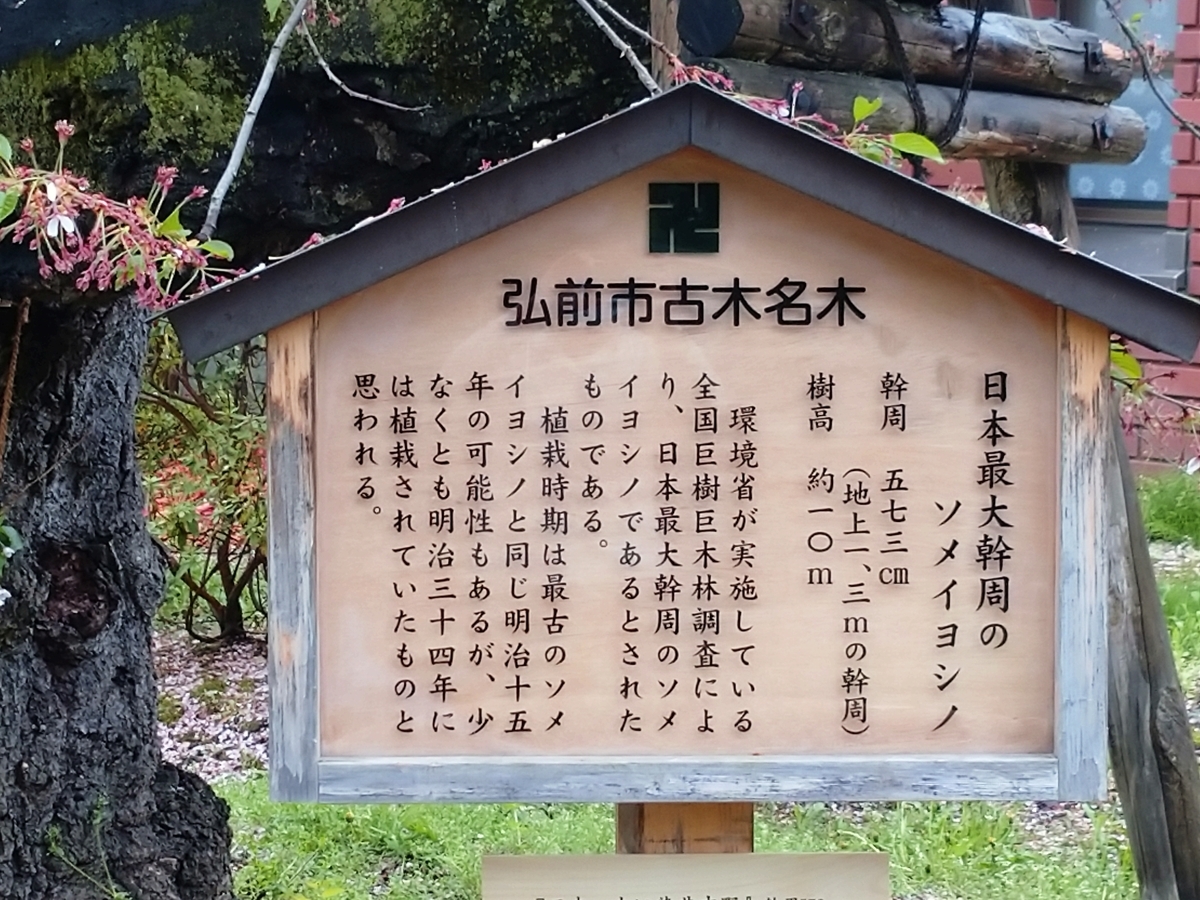 弘前市古木名木
日本最大幹周の
ソメイヨシノ
幹周 五七三㎝
(地上一、三mの幹周)
樹高 約一〇m
環境省が実施している
全国巨樹巨木林調査によ
り、日本最大幹周のソメ
イヨシノであるとされた
ものである。
植栽時期は最古のソメ
イヨシノと同じ明治十五
年の可能性もあるが、少
なくとも明治三十四年に
は植栽されていたものと
思われる。